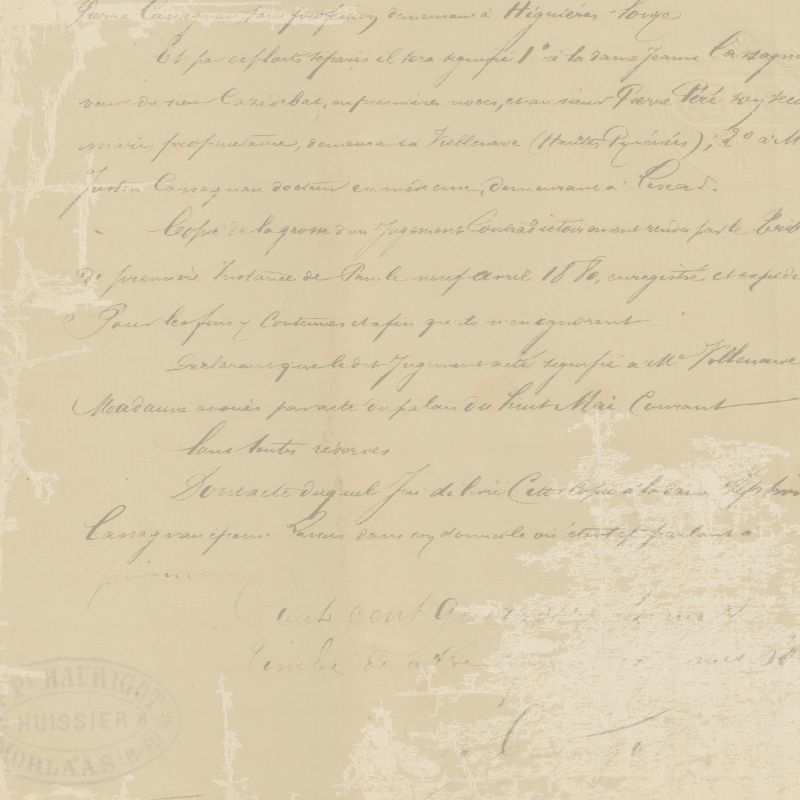 Pierre Cassagnau sans profession, demeurant à Higuières-Souye
Et par exploits séparés il sera signifié 1° à la dame Jeanne Cassagna
veuve du sieur Cazedebat, en premières noces, et au sieur Pierre Péré son seco
mari, propriétaire, demeurant à Villenave (Hautes Pyrénées); 2° à M
Justin Cassagnau docteur en médecine, demeurant à Lescar.
Copie de la grosse d'un Jugement Contradictoirement rendu par le Trib
de première Instance de Pau le neuf avril 1880, enregistré et expédi
Pour les fins y contenues et afin qu'ils n'en ignorent
Déclarant que le dit Jugement a été signifié à Me
avoués par acte du palais du huit Mai Courant
Sous toutes réserves
Dont acte duquel J'ai délivré Cette copie à la dame
Cassagnau épouse Lassus dans son domicile où étant et parlant à
Coût cent
timbre de
Pre HAURIGOT
HUISSIER
MORLAÀS (B-P)